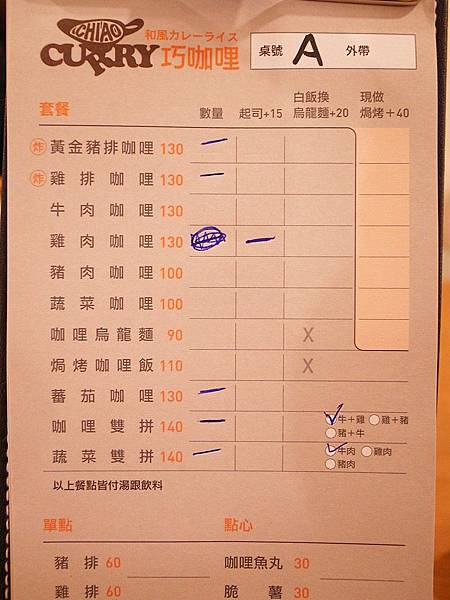 CHIAO
CURRY
和風カレーライス
巧咖哩
桌號 A 外帶
套餐 數量 起司+15 白飯換烏龍麵+20 現做焗烤+40
炸 黃金豬排咖哩 130 一
炸 雞排咖哩 130 一
牛肉咖哩 130
雞肉咖哩 130 一
豬肉咖哩 100
蔬菜咖哩 100
咖哩烏龍麵 90 X
焗烤咖哩飯 110 X
蕃茄咖哩 130 一
咖哩雙拼 140 一 ✓牛+雞 ○雞+豬
○豬+牛
蔬菜雙拼 140 一 ✓牛肉 ○雞肉
○豬肉
以上餐點皆付湯跟飲料
單點 點心
豬排 60 咖哩魚丸 30
雞排 60 脆薯 30